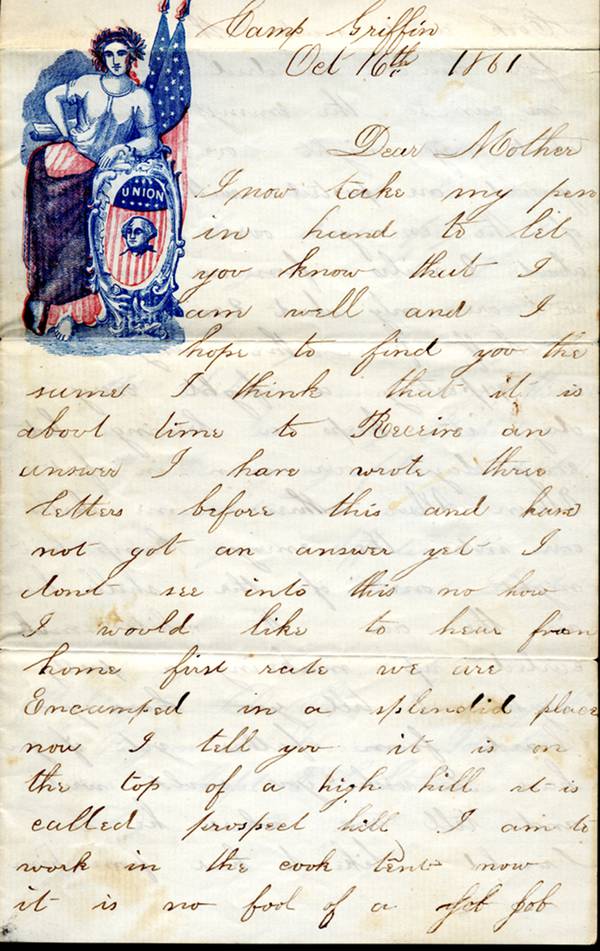 Camp Griffin
Oct 16th 1861
Dear Mother
UNION
I now take my pen
in hand to let
you know that I
am well and I
hope to find you the
same I think that it is
about time to Receive an
answer I have wrote three
letters before this and have
not got an answer yet I
dont see into this no how
I would like to hear from
home first rate we are
Encamped in a splendid place
now I tell you it is on
the top of a high hill it is
called prospect hill I am to
work in the cook tent now
it is no fool of a Job